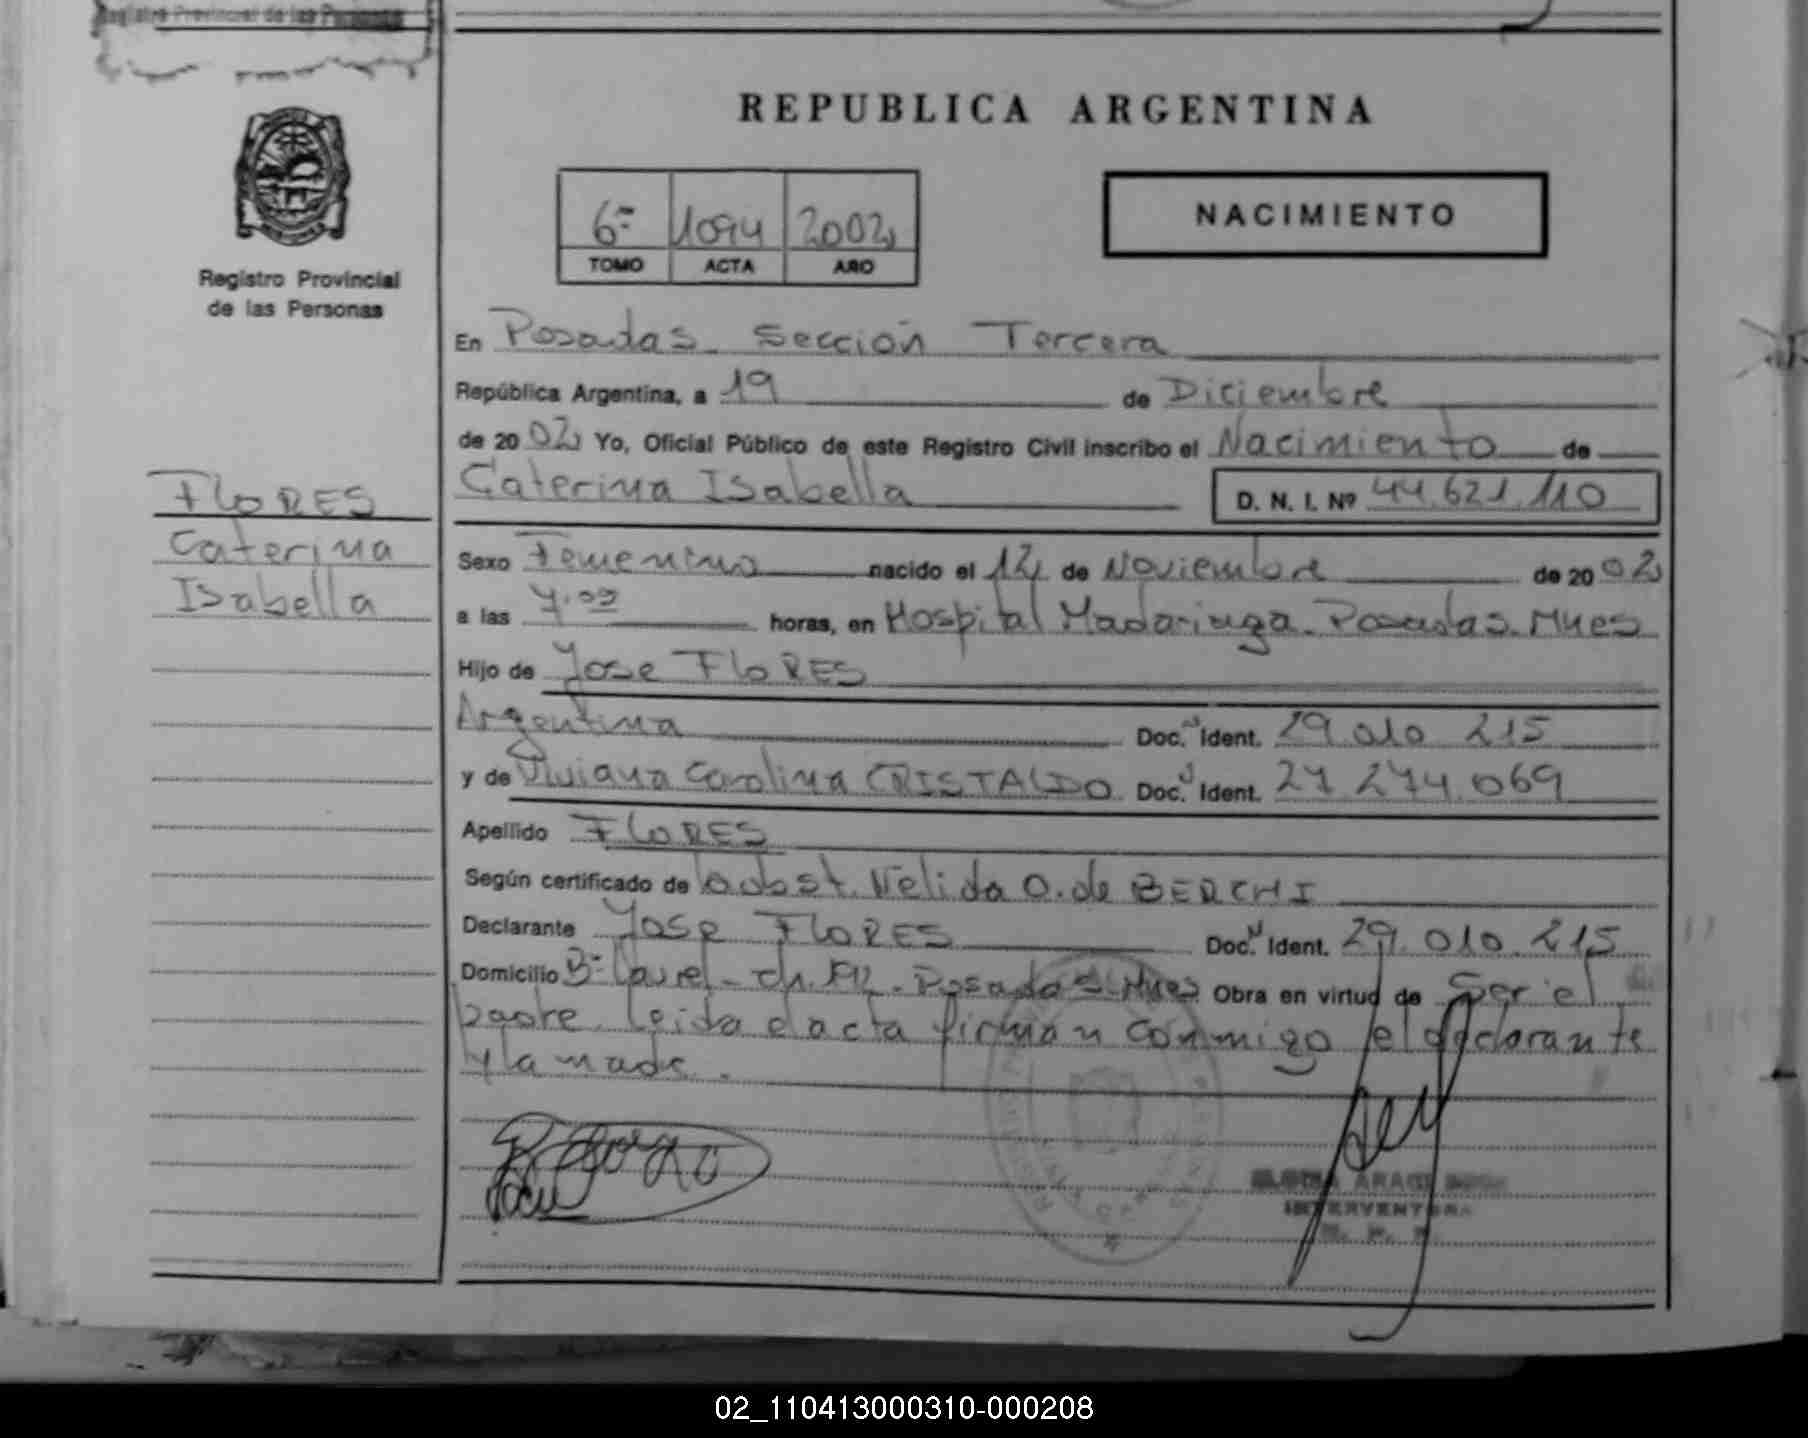 Registro Provincial de las Personas
REPUBLICA ARGENTINA
6º 1094 2002
TOMO ACTA AÑO
NACIMIENTO
Registro Provincial
de las Personas
En Posadas Sección Tercera
República Argentina, a 19 de Diciembre
de 2002 Yo, Oficial Público de este Registro Civil inscribo el Nacimiento de
Caterina Isabella D. N. I. Nº 44.621.110
FLORES
Caterina
Isabella
Sexo Femenino nacido el 12 de Noviembre de 2002
a las 7.09 horas, en Hospital Madariaga. Posadas. Mnes
Hijo de Jose FLORES
Argentina Doc. Ident. 29.010.215
y de Viviana Carolina CRISTALDO Doc. Ident. 27.274.069
Apellido FLORES
Según certificado de la obst. Nelida O. de BERCHI
Declarante Jose FLORES Doc. Ident. 29.010.215
Domicilio Bº Laurel - Ch. 192 - Posadas Mnes Obra en virtud de Ser el
padre. leida el acta firman conmigo el declarante
y la madre.
INTERVENTORA
02_110413000310-000208